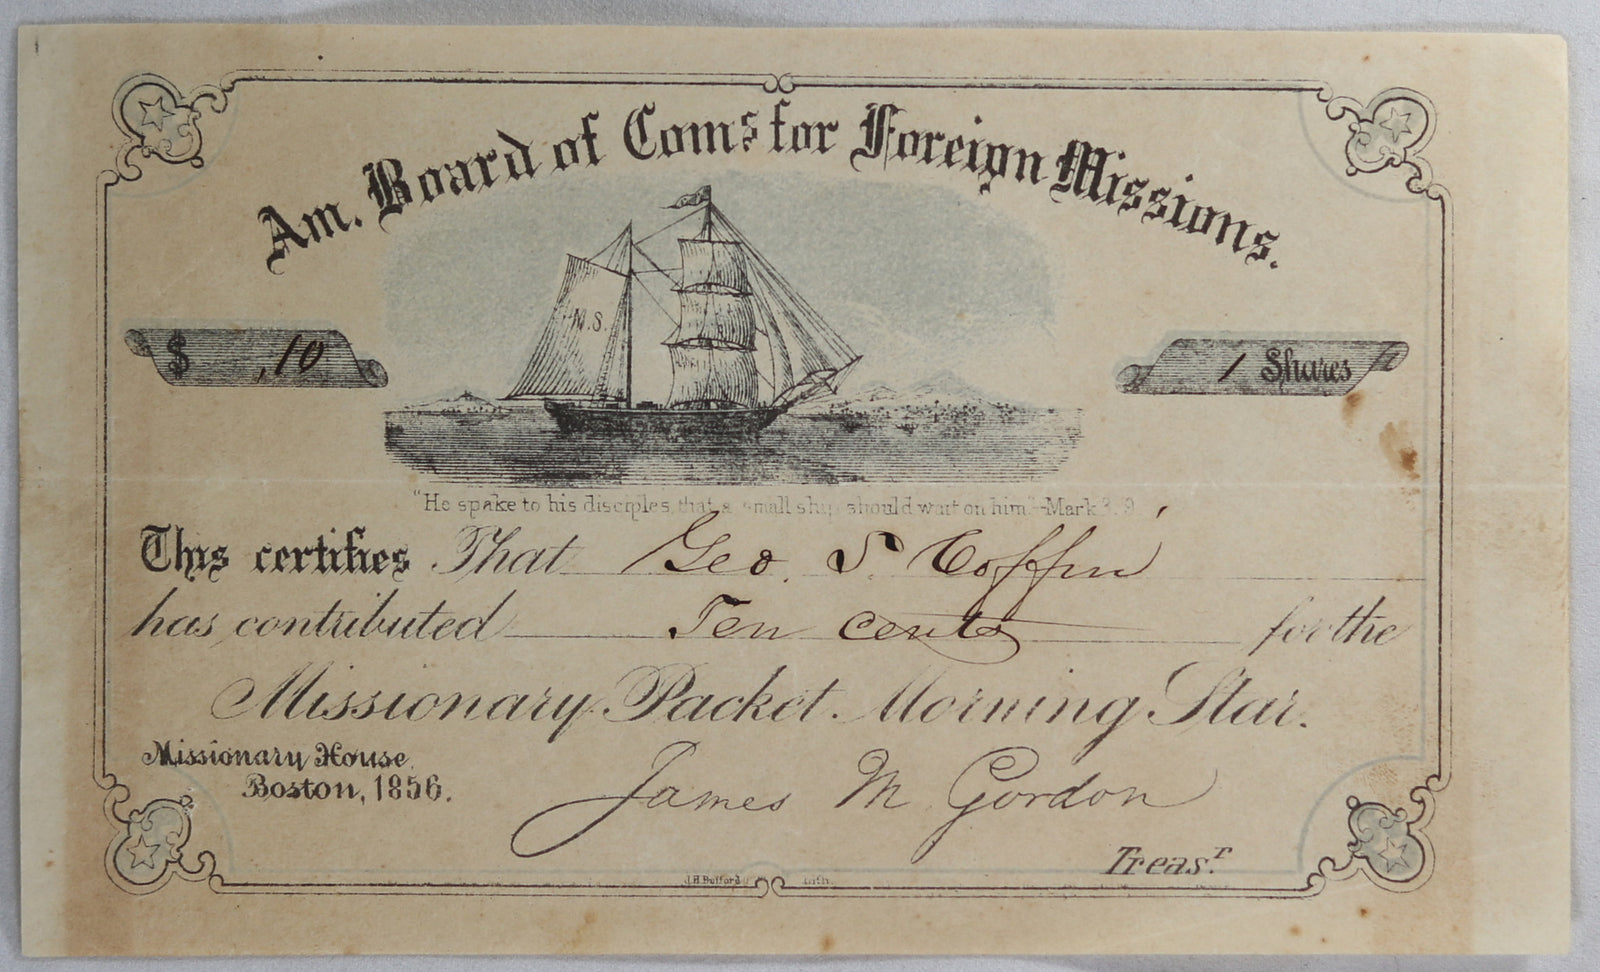 Am. Board of Coms for Foreign Missions.
M.S.
$ .10
1 Shares
"He spake to his disciples, that a small ship should wait on him."-Mark 3.9.
This certifies That Geo. S. Coffin
has contributed Ten cents for the
Missionary Packet. Morning Star.
Missionary House.
Boston, 1856.
James M Gordon
Treasr
J.H. Bufford lith.